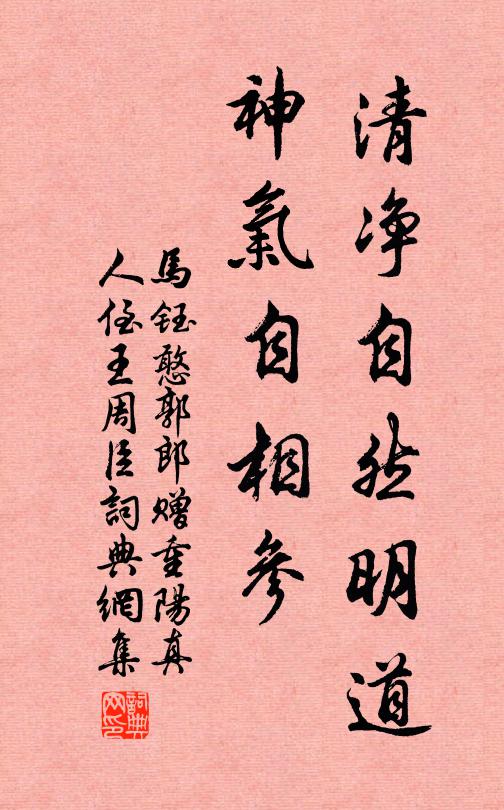 清净自然明道
神氣自相參
馬鈺憨郭郎贈重陽真
人侄王周臣詞典網集
詞典网印